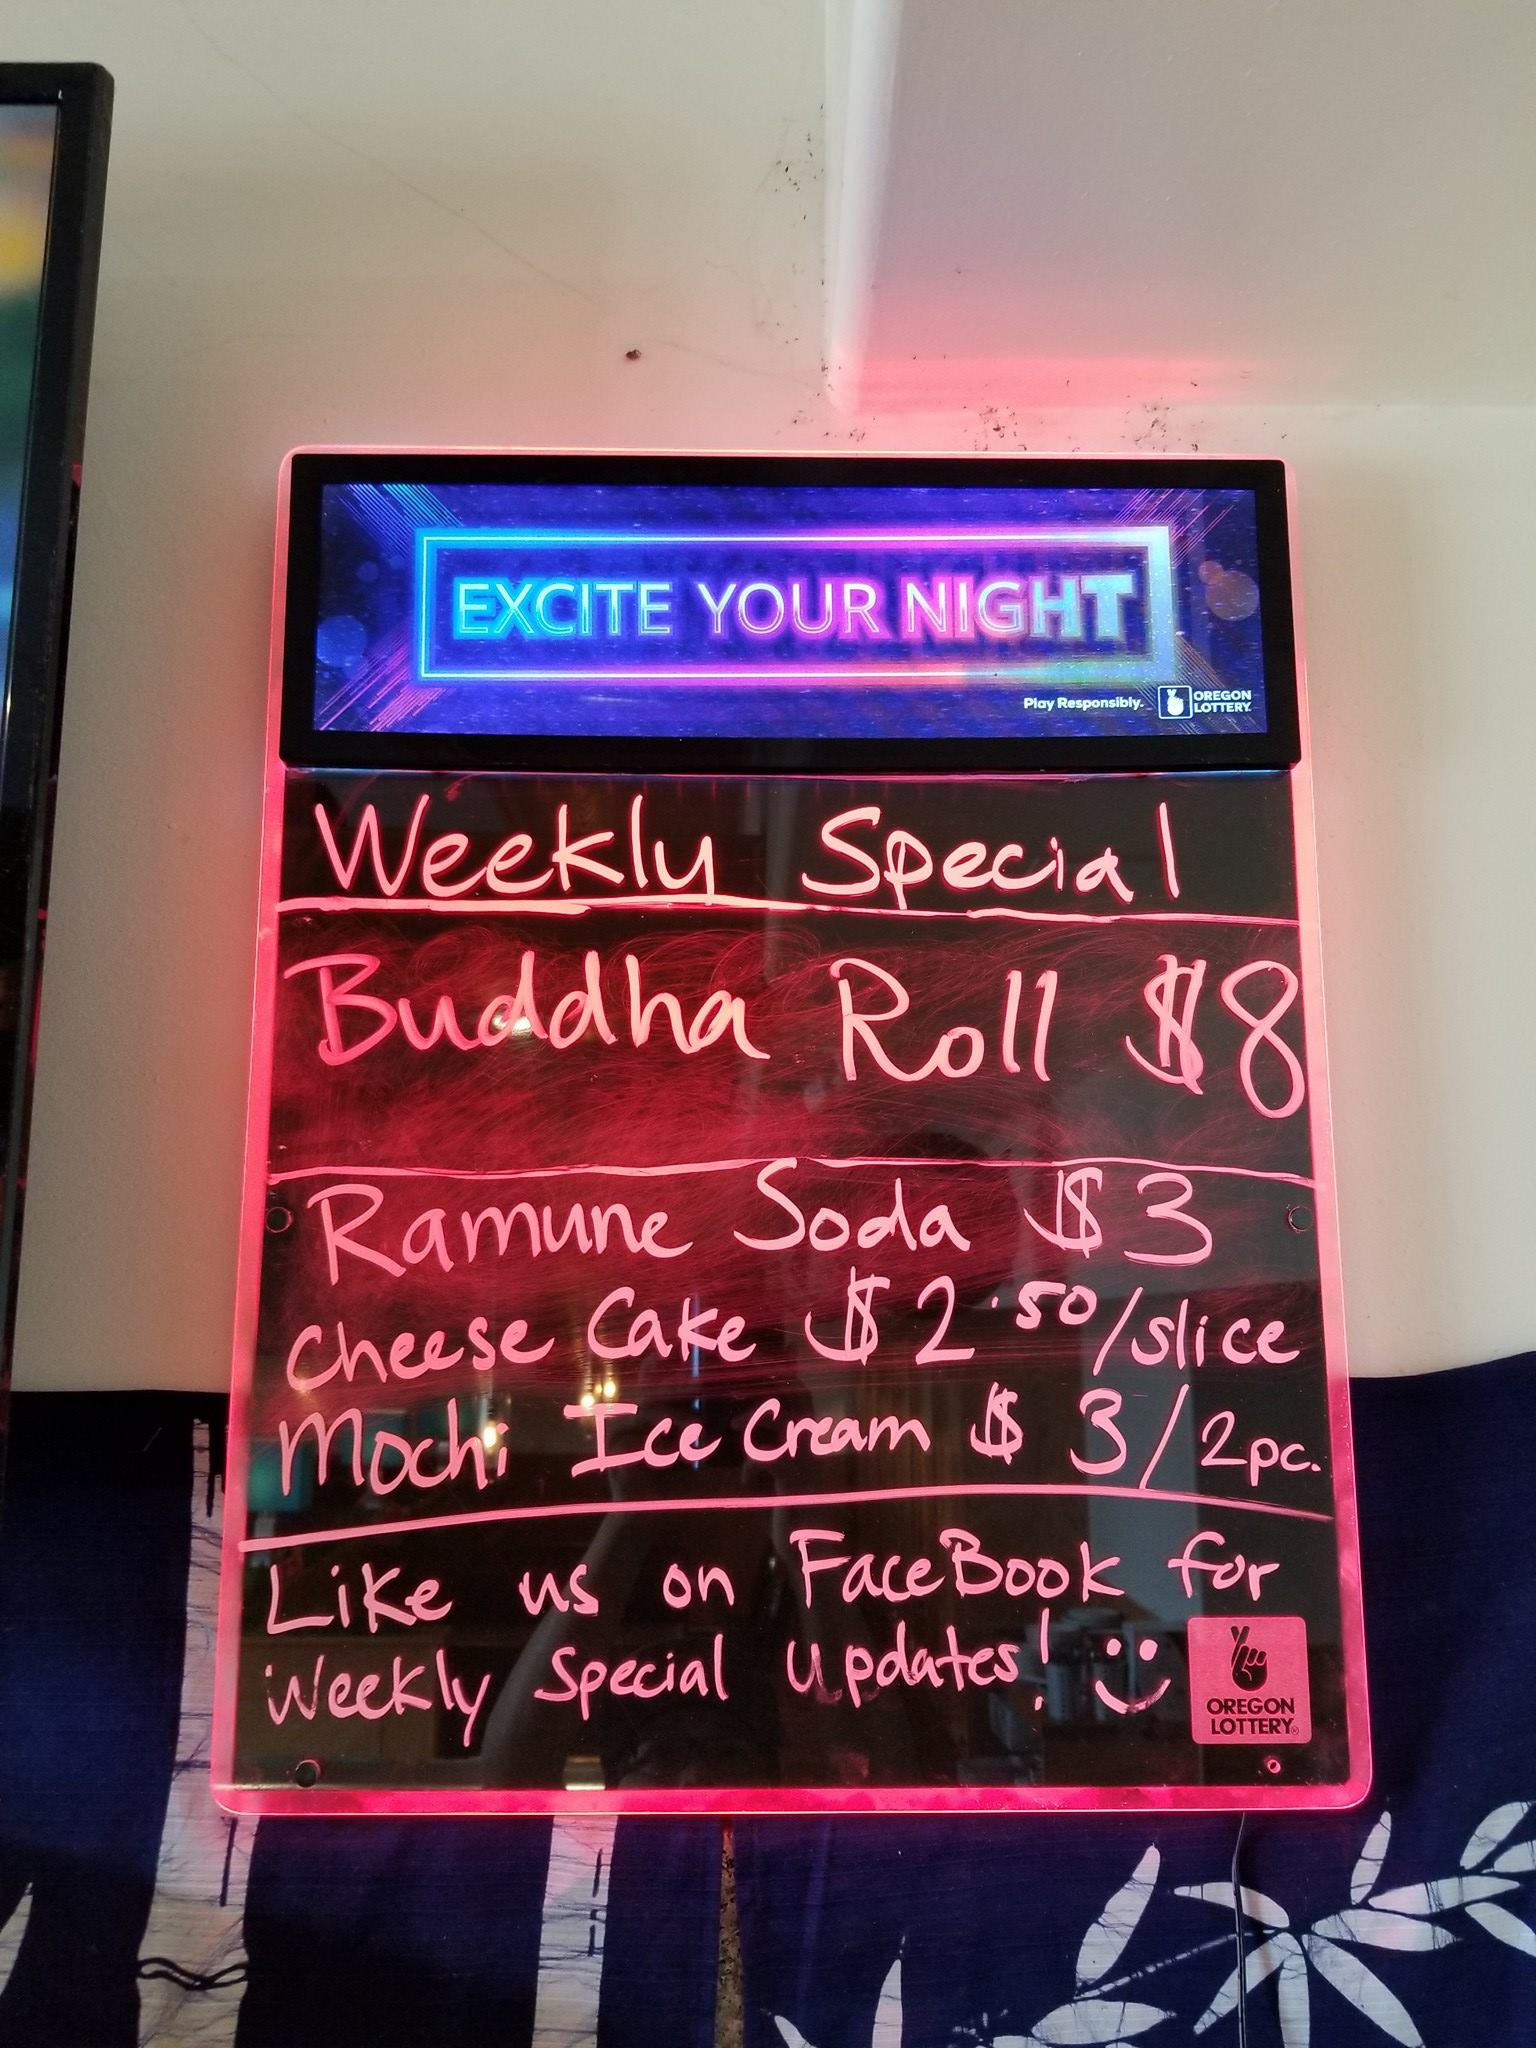 EXCITE YOUR NIGHT
Play Responsibly. OREGON
LOTTERY
Weekly Special
Buddha Roll $8
Ramune Soda $3
Cheese Cake $2.50/slice
Mochi Ice Cream $3/2pc.
Like us on FaceBook for
Weekly Special Updates! :)
OREGON
LOTTERY®